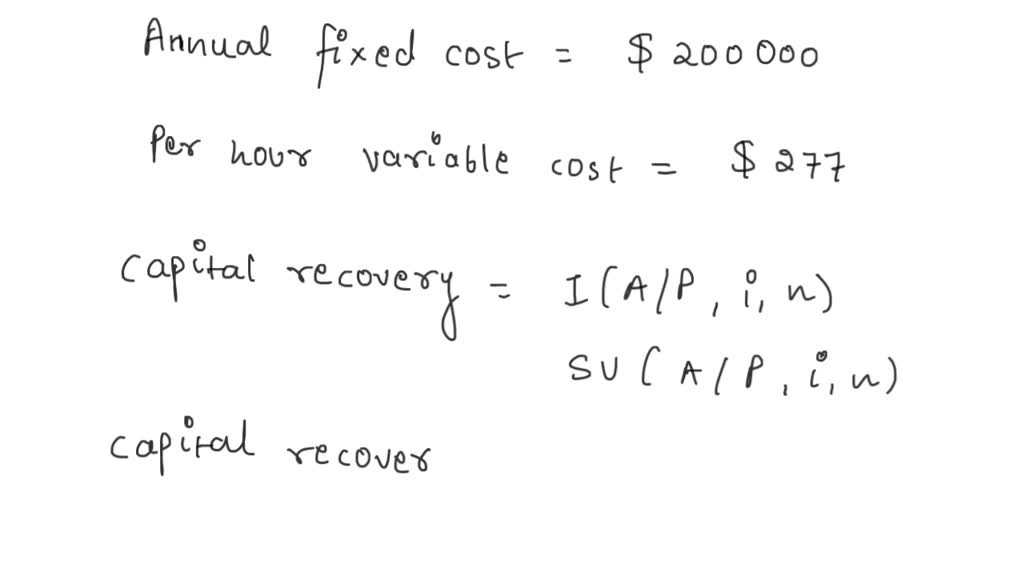 Annual fixed cost = $ 200 000
Per hour variable cost = $ 277
Capital recovery = I(A/P, i, n)
SV(A/P, i, n)
Capital recover